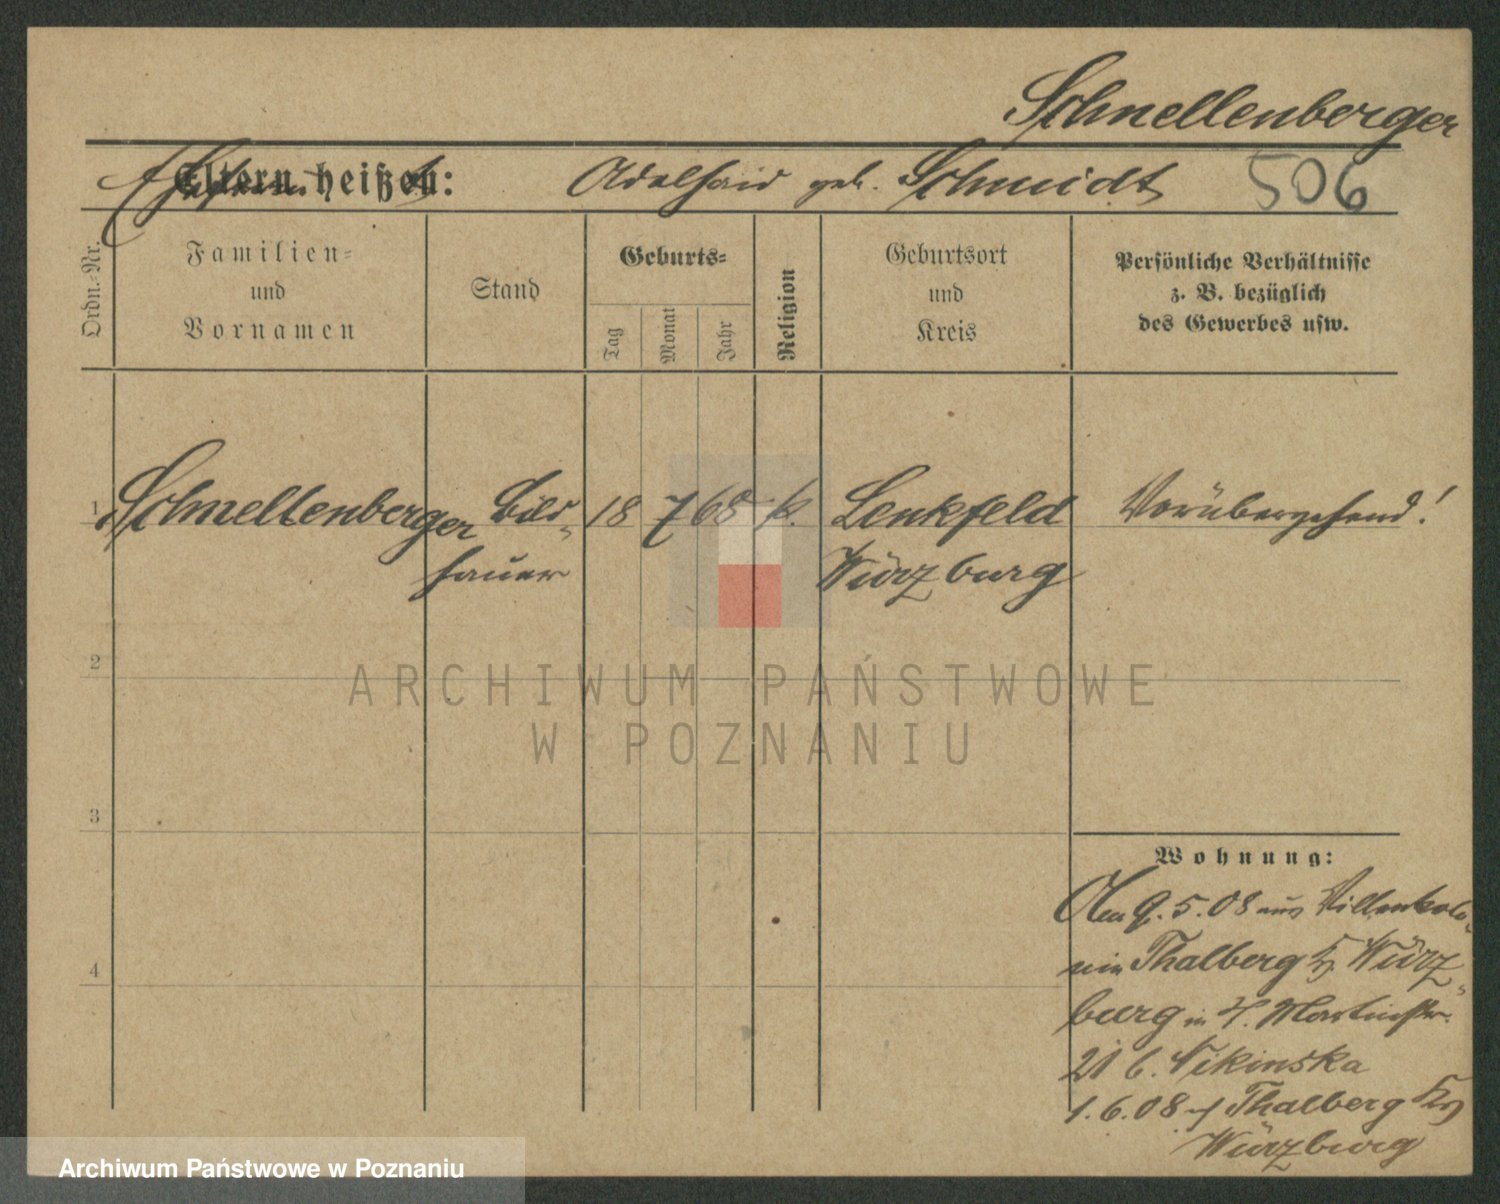 Schnellenberger
Eltern heißen: Adelheid geb. Schmidt 506
Ordn.-Nr.
Familien-
und
Vornamen
Stand
Geburts-
Tag
Monat
Jahr
Religion
Geburtsort
und
Kreis
Persönliche Verhältnisse
z. B. bezüglich
des Gewerbes usw.
1 Schnellenberger Bild- 18 7 68 k. Lenkfeld Vorübergehend!
hauer Würzburg
2
ARCHIWUM PAŃSTWOWE
W POZNANIU
3
Wohnung:
9.5.08 aus Villenkolo-
nie Thalberg Kr. Würz-
burg in Martinstr.
21 b. Nikinska
1.6.08 Thalberg Kr.
Würzburg
4
Archiwum Państwowe w Poznaniu